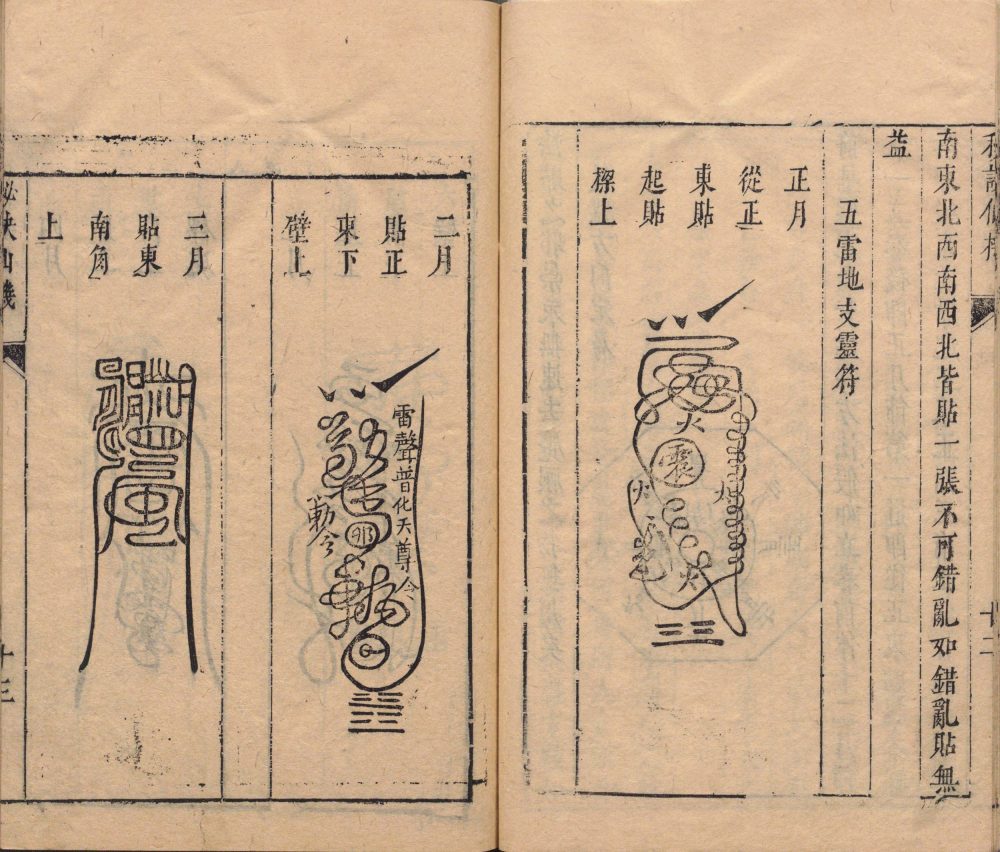 十二
南東北西南西北皆貼一張不可錯亂如錯亂貼無
益
五雷地支靈符
正月
從正
東貼
起貼
樑上
火
震
火
火
火
二月
貼正
東下
壁上
雷聲普化天尊令
勅令
三月
貼東
南角
上
十三